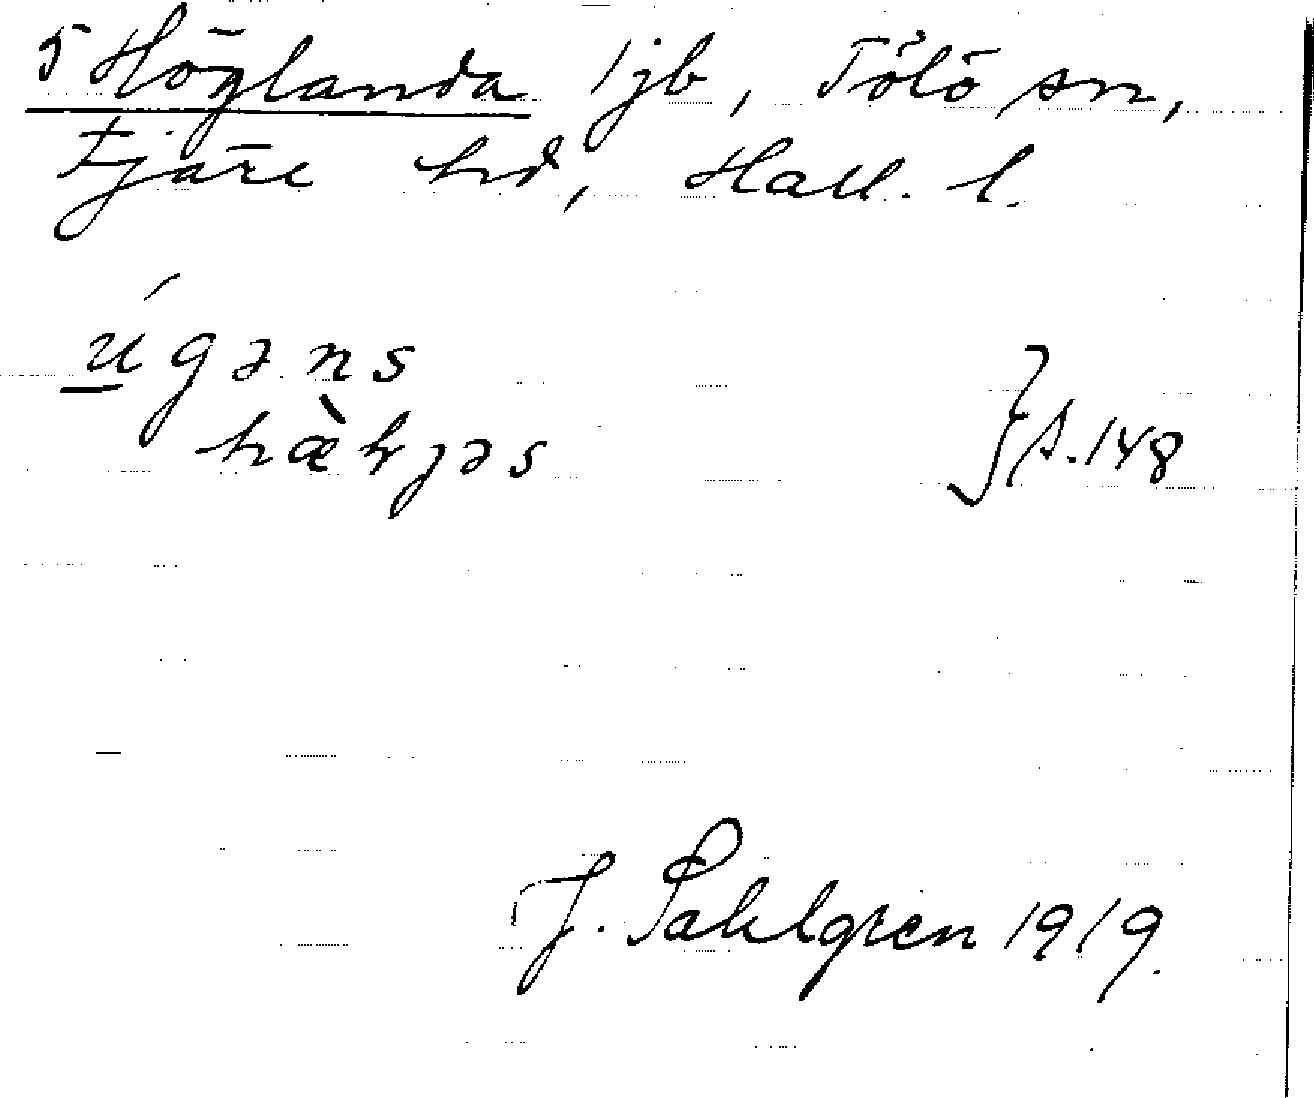 5 Höglanda 1 jb, Tölö sn,
Fjäre hd, Hall. l.
úgəns
hæ̀kjəs } s. 148
J. Sahlgren 1919.